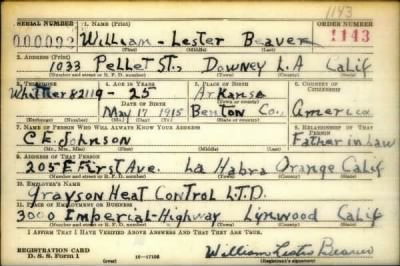 1143
SERIAL NUMBER 1. NAME (Print) ORDER NUMBER
000092 William - Lester Beaver 1143
(First) (Middle) (Last)
2. ADDRESS (Print)
1033 Pellet St., Downey L.A Calif
(Number and street or R. F. D. number) (Town) (County) (State)
3. TELEPHONE 4. AGE IN YEARS 5. PLACE OF BIRTH 6. COUNTRY OF CITIZENSHIP
Whittier 42119 - 25 Arkansa
DATE OF BIRTH (Town or county)
May 17 1915 Benton Co., America
(Exchange) (Number) (Mo.) (Day) (Yr.) (State or country)
7. NAME OF PERSON WHO WILL ALWAYS KNOW YOUR ADDRESS 8. RELATIONSHIP OF THAT PERSON
C.E. Johnson Father in Law
(Mr., Mrs., Miss) (First) (Middle) (Last)
9. ADDRESS OF THAT PERSON
205 E First Ave. La Habra Orange Calif
(Number and street or R. F. D. number) (Town) (County) (State)
10. EMPLOYER'S NAME
Grayson Heat Control L.T.D.
11. PLACE OF EMPLOYMENT OR BUSINESS
3000 Imperial-Highway Lynwood Calif
(Number and street or R. F. D. number) (Town) (County) (State)
I AFFIRM THAT I HAVE VERIFIED ABOVE ANSWERS AND THAT THEY ARE TRUE.
REGISTRATION CARD
D. S. S. Form 1 16-17105 William Lester Beaver
(Registrant's signature)